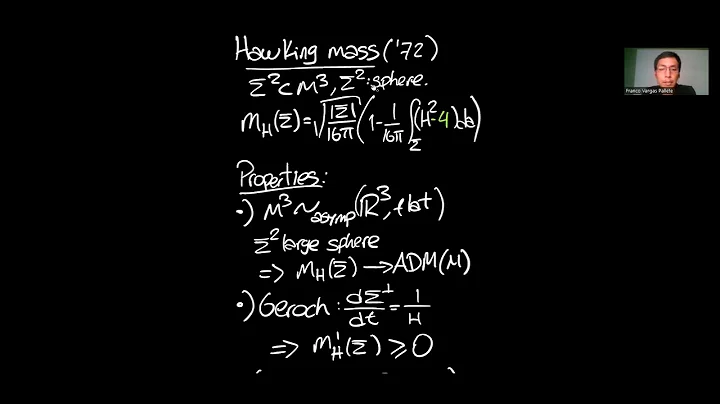 Hawking mass ('72)
Σ² ⊂ M³, Σ²: sphere.
m_H(Σ) = √(|Σ|/16π) (1 - 1/16π ∫_Σ (H² - 4) da)
Properties:
•) M³ ~asymp (ℝ³, flat)
Σ² large sphere
=> m_H(Σ) → ADM(M)
•) Geroch: dΣ^⊥/dt = 1/H
=> m_H'(Σ) ≥ 0
Franco Vargas Pallete